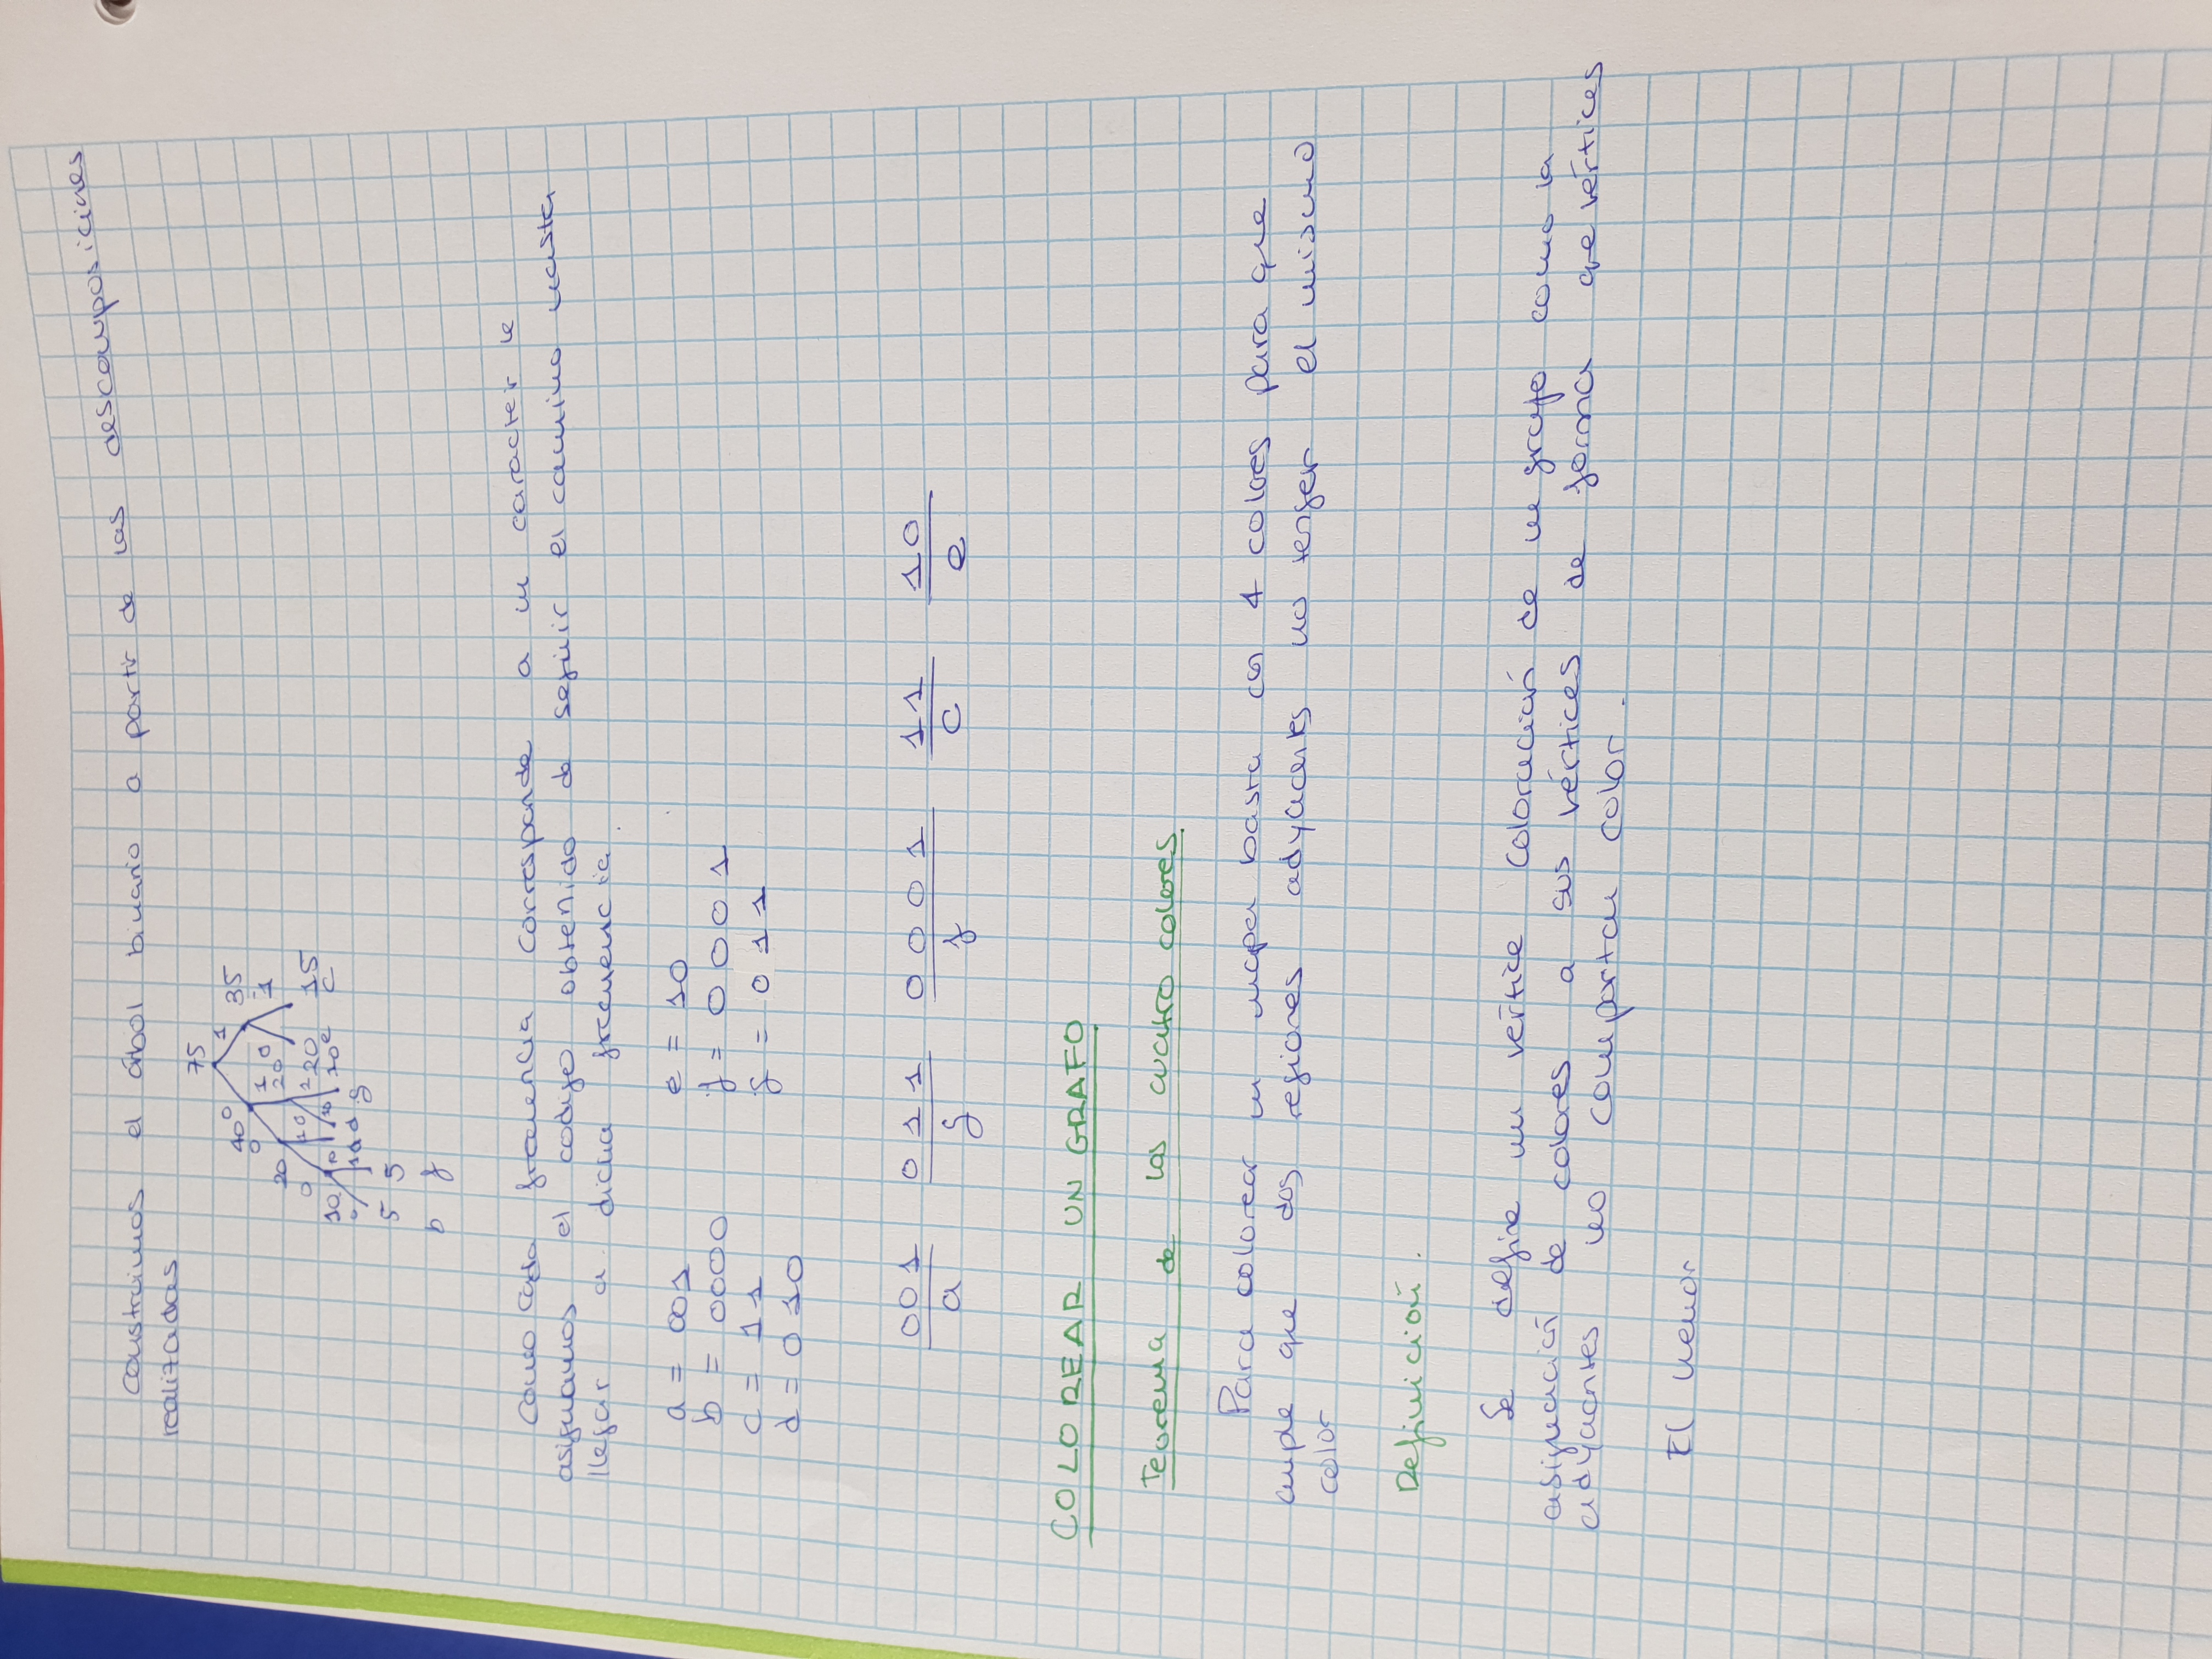 Construimos el árbol binario a partir de las descomposiciones
realizadas
75
40 0 1 35
20 0 1 20 0 1
0 10 1 20 15
10 1 10 20 e c
0 10 a d g
5 5
b f
Como cada frecuencia corresponde a un caracter le
asignamos el codigo obtenido de seguir el camino hasta
llegar a dicha frecuencia
a = 001 e = 10
b = 0000 f = 00001
c = 11 g = 011
d = 010
001 011 00001 11 10
a g f c e
COLOREAR UN GRAFO
Teorema de los cuatro colores
Para colorear un mapa basta con 4 colores para que
cumple que dos regiones adyacentes no tengan el mismo
color
Definición.
Se define un vertice coloración de un grafo como la
asignación de colores a sus vértices de forma que vértices
adyacentes no compartan color.
El menor